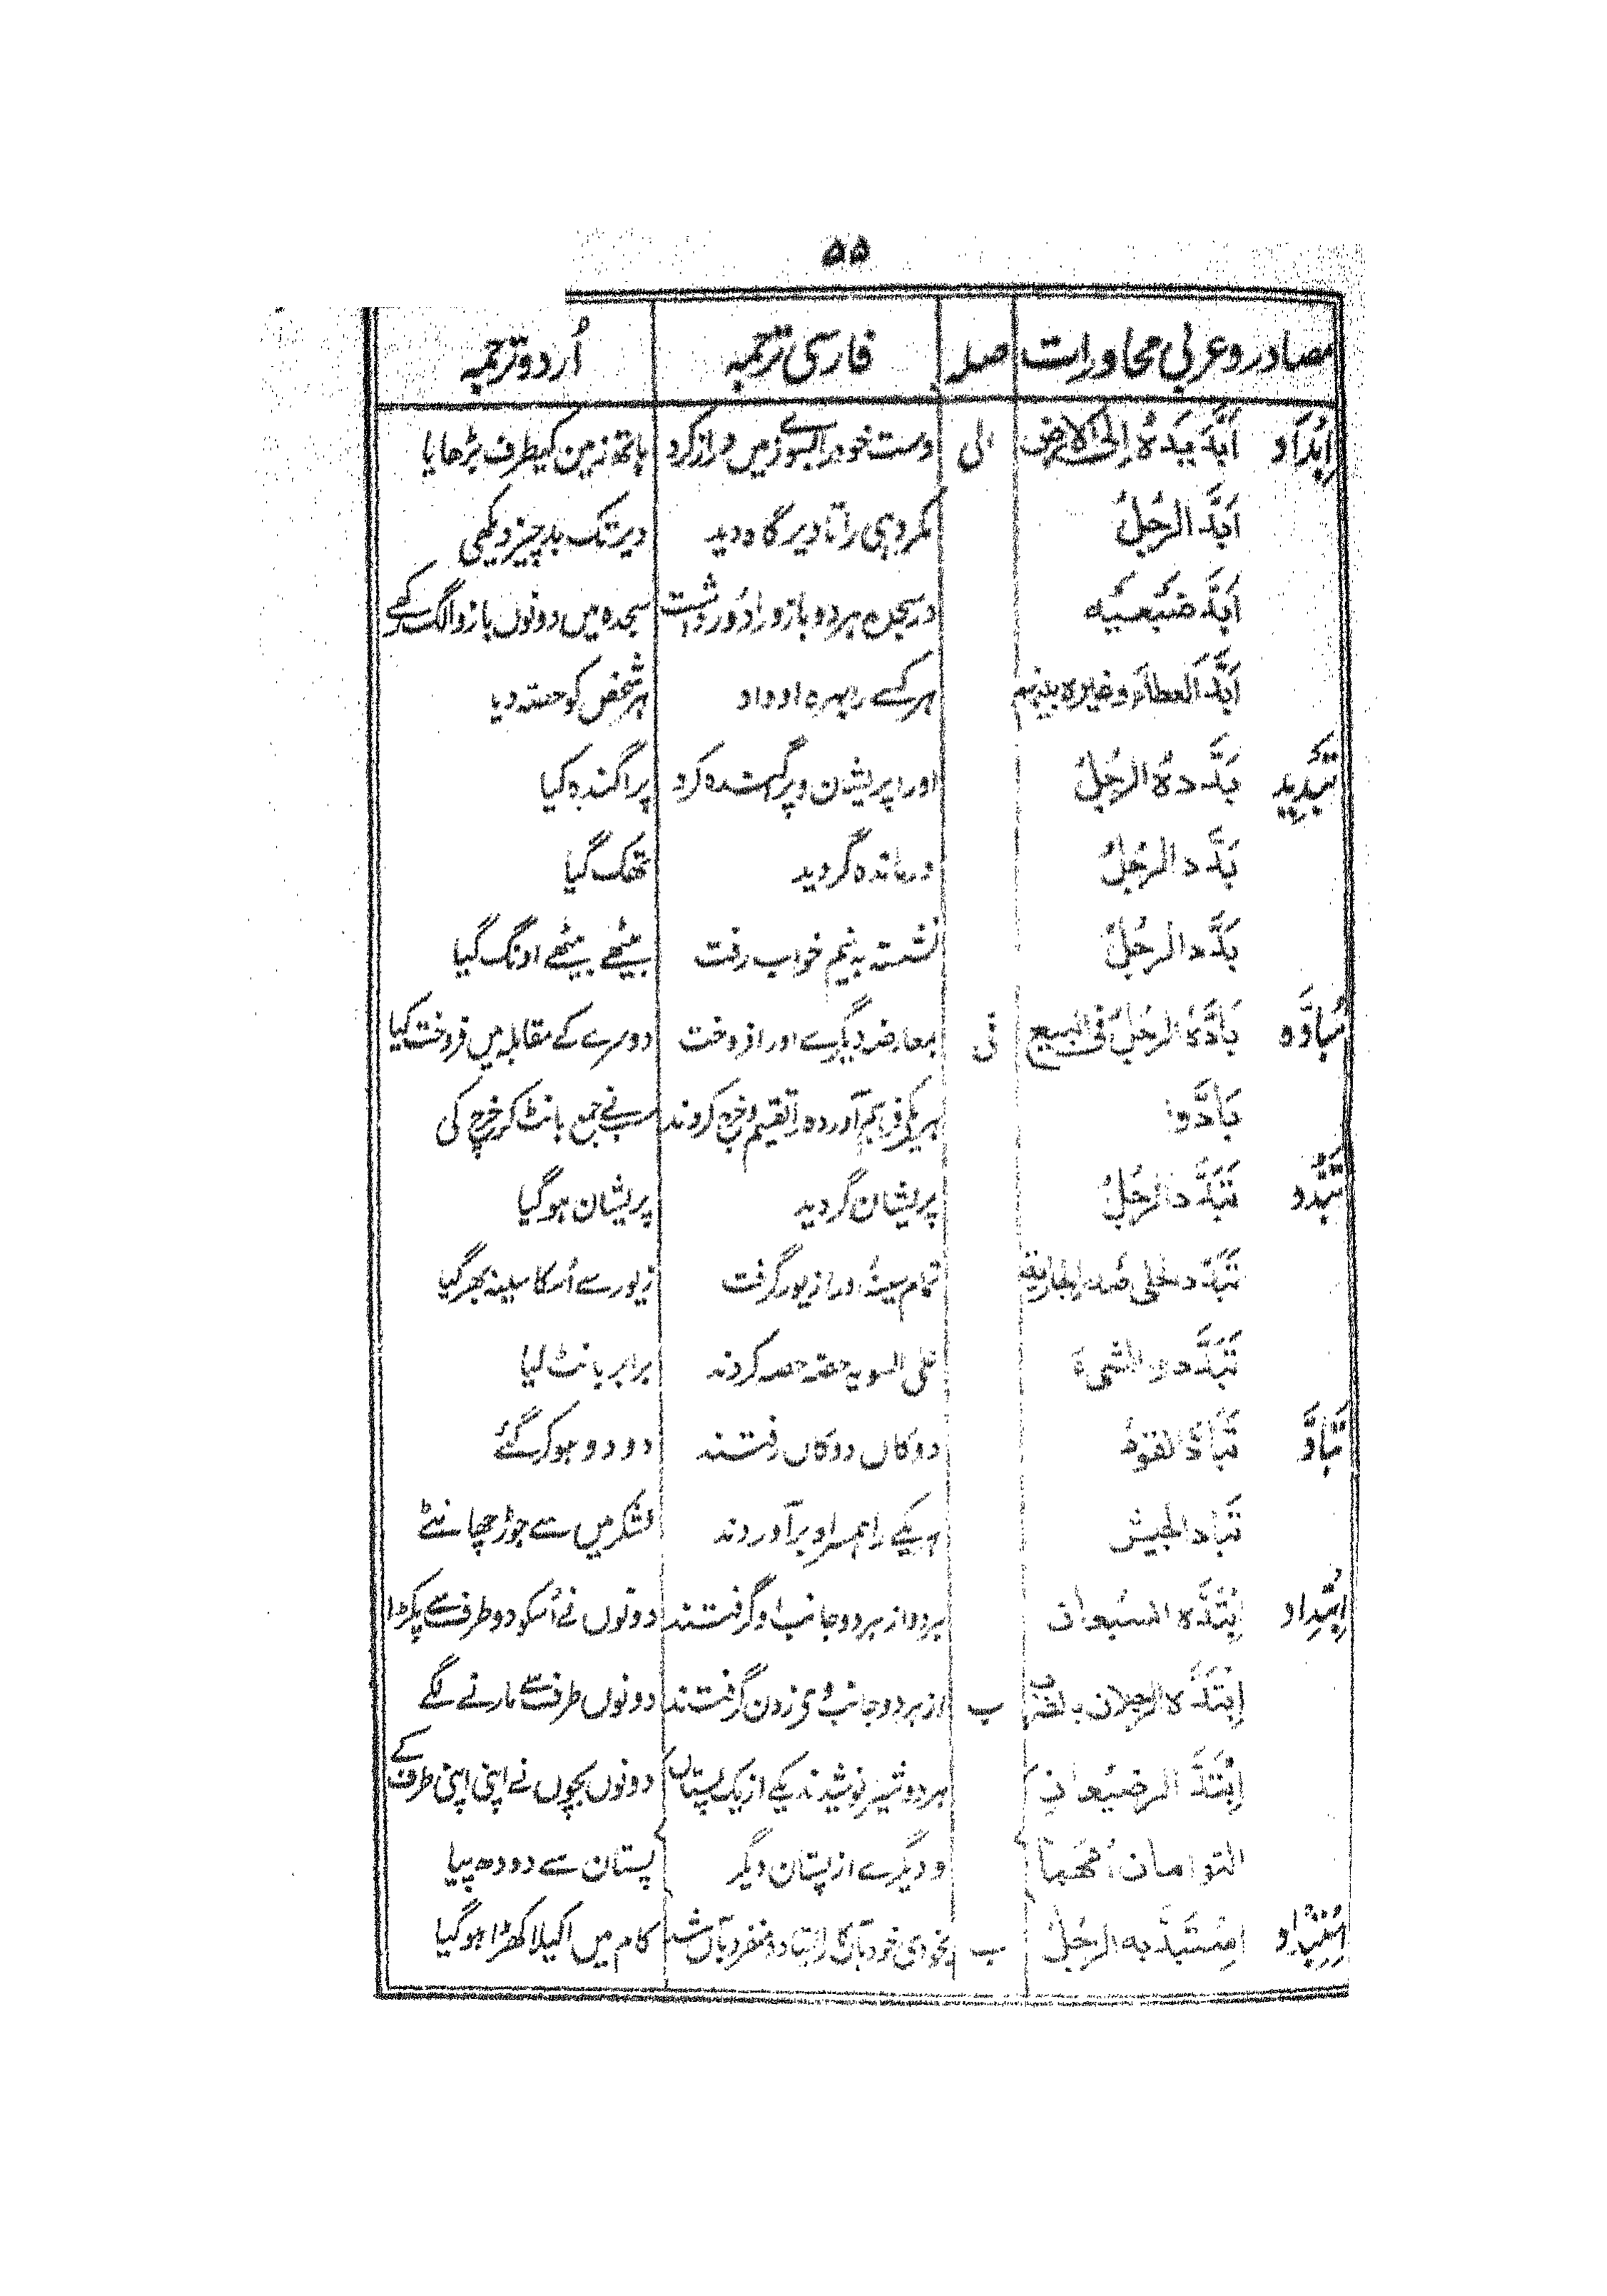 ۵۵
مصادر و عربی محاورات صلہ فارسی ترجمہ اُردو ترجمہ
اِبْدَاد اَبَدَّ يَدَهٗ اِلَى الْاَرْضِ الی دست خود را بسوے زمیں دراز کرد ہاتھ زمین کیطرف بڑھایا
اَبَدَّ الرَّجُلُ مکروہی را تا دیر گاہ دید دیر تک بد چیز دیکھی
اَبَدَّ ضَبْعَيْهِ در سجدہ ہر دو بازو را دُور داشت سجدہ میں دونوں بازو الگ رکھے
اَبَدَّ الْعَطَاءَ وغیرہ بَيْنَهُم ہر کسے را بہرہ او داد ہر شخص کو حصہ دیا
تَبْدِيد بَدَّدَهُ الرَّجُلُ او را پریشان و پراگندہ کرد پراگندہ کیا
بَدَّدَ الرَّجُلُ درماندہ گردید تھک گیا
بَدَّدَ الرَّجُلُ نشستہ بہ نیم خواب رفت بیٹھے بیٹھے اونگ گیا
مُبَادَّه بَادَّهُ الرَّجُلُ فِى الْبَيْعِ فی بمعارضہ دیگرے او را فروخت دوسرے کے مقابلہ میں فروخت کیا
بَادَّوا ہر یکے بہم آوردہ را تقسیم و خرچ کردند سب نے جمع بانٹ کر خرچ کی
تَبَدُّد تَبَدَّدَ الرَّجُلُ پریشان گردید پریشان ہوگیا
تَبَدَّدَ الحلى صدر الجارية تمام سینہ او را زیور گرفت زیور سے اُسکا سینہ بھر گیا
تَبَدَّدُوا الشىءَ علی السویہ حصہ حصہ کردند برابر بانٹ لیا
تَبَادّ تَبَادَّ القومُ دوکاں دوکاں رفتند دو دو ہو کر گئے
تَبَادَّ الجيش ہر یکے را ہمسر او بر آوردند لشکر میں سے جوڑ چھانٹے
اِبْتِدَاد اِبْتَدَّهُ السَّبُعَان ہر دو از ہر دو جانب او گرفتند دونوں نے اُسکو دو طرف سے پکڑا
اِبْتَدَّهُ الرَّجُلان ب از ہر دو جانب وے زدن گرفتند دونوں طرف سے مارنے لگے
اِبْتَدَّ الرَّضِيعَانِ ہر دو شیر نوشیدند یکے از یک پستان دونوں بچوں نے اپنی اپنی طرف کے
التوامان اُمَّهُمَا و دیگرے از پستان دیگر پستان سے دودھ پیا
اِسْتِبْدَاد اِسْتَبَدَّ بِهِ الرَّجُلُ ب کام میں اکیلا کھڑا ہوگیا